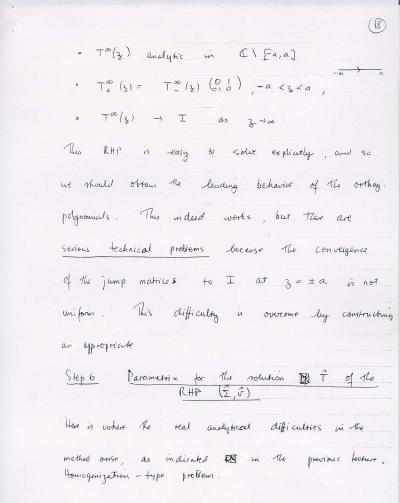 18
• T^∞(z) analytic in ℂ \ [-a, a]
-a a
• T^∞_+(z) = T^∞_-(z) (0 1 / -1 0), -a < z < a,
• T^∞(z) → I as z → ∞
This RHP is easy to solve explicitly, and so
we should obtain the leading behavior of the orthog.
polynomials. This indeed works, but there are
serious technical problems because the convergence
of the jump matrices to I at z = ± a is not
uniform. This difficulty is overcome by constructing
an appropriate
Step 6 Parametrix for the solution T̂ of the
RHP (Σ̂, v̂)
Here is where the real analytical difficulties in the
method arise, as indicated in the previous lecture.
Homogenization-type problem.